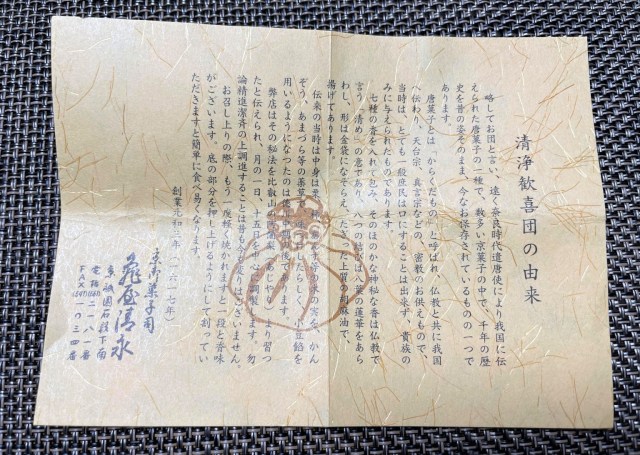 清浄歓喜団の由来
略してお団と言い、遠く奈良時代遣唐使により我国に伝
えられた唐菓子の一種で、数多い京菓子の中で、千年の歴
史を昔の姿そのまま、今なお保存されているものの一つで
あります。
唐菓子とは、「からくだもの」と呼ばれ、仏教と共に我国
へ伝わり、天台宗、真言宗などの、密教のお供えもので、
当時は、とても一般庶民は口にすることは出来ず、貴族の
みに与えられたものであります。
七種の香を入れて包み、そのほのかな神秘な香は仏教で
言う「清め」の意であり、八つの結びは八葉の蓮華をあら
わし、形は金袋になぞらえ、たっぷり上質の胡麻油で、
揚げてあります。
伝来の当時は中身は栗、柿、あんず等の木の実を、かん
ぞう、あまづら等の薬草で味つけしたらしく、小豆餡を
用いるようになつたのは徳川中期以後であります。
弊店はその秘法を比叡山の阿闍梨(あじゃり)より習つ
たと伝えられ、月の一日、十五日を中心に調製します。勿
論精進潔斉の上調進することは昔も今も変りはございません。
お召し上りの際、もう一度軽く焼かれますと一段と香味
がございます。底の部分を押し上げるようにして割ってい
ただきますと簡単に食べ易くなります。
創業元和三年(一六一七年)
京御菓子司
亀屋清永
東祗園石段下南
電話(561)二一八一番
FAX(541)一〇三四番